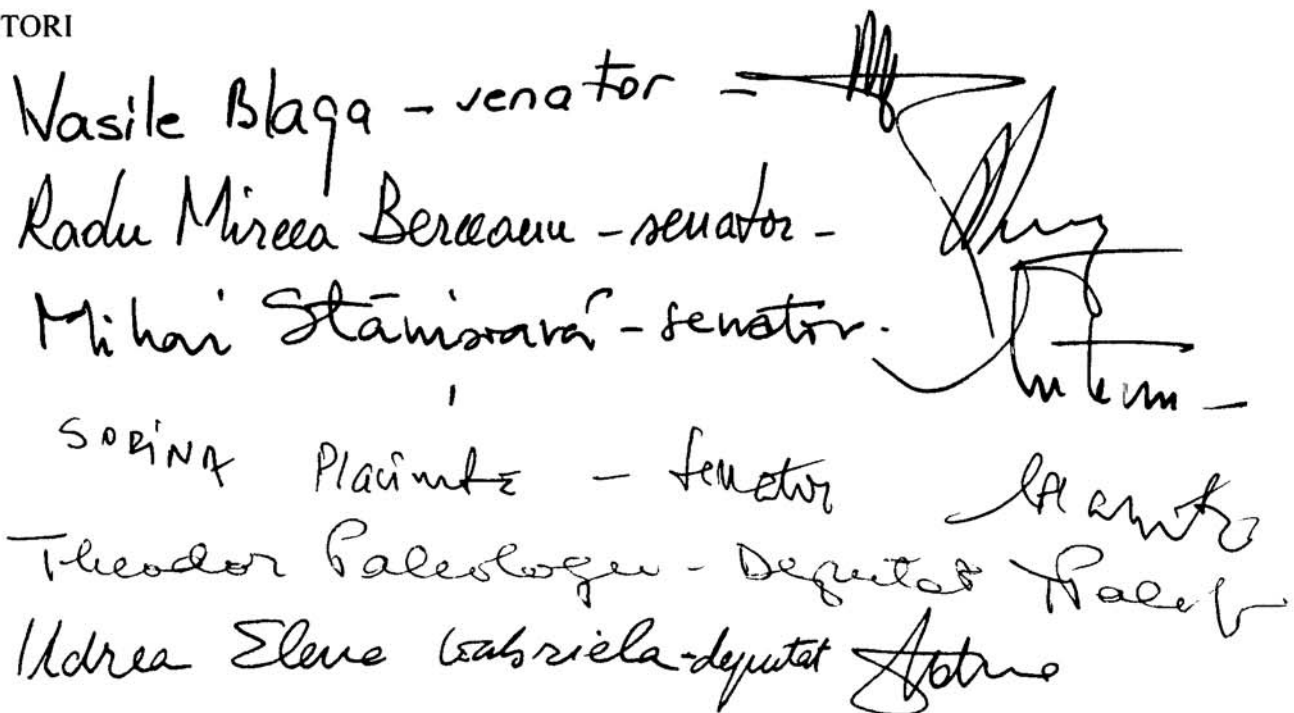 TORI
Vasile Blaga - senator -
Radu Mircea Berceanu - senator -
Mihai Stănișoară - senator.
SORINA Placintă - senator
Theodor Paleologu - Deputat
Udrea Elena Gabriela - deputat